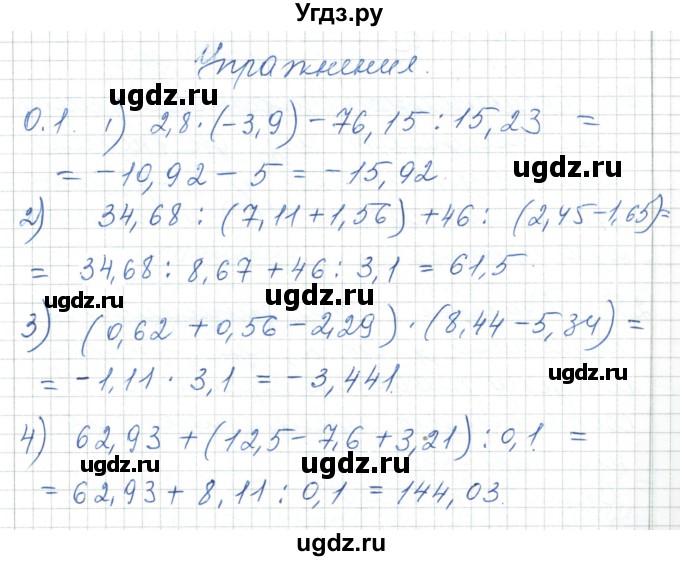 Угдз.ру
Упражнения.
ugdz.ru
0.1. 1) 2,8·(-3,9) - 76,15 : 15,23 =
ugdz.ru
= -10,92 - 5 = -15,92.
2) 34,68 : (7,11 + 1,56) + 46 : (2,45 - 1,65) =
ugdz.ru
= 34,68 : 8,67 + 46 : 3,1 = 61,5
ugdz.ru ugdz.ru
3) (0,62 + 0,56 - 2,29) · (8,44 - 5,34) =
ugdz.ru
= -1,11 · 3,1 = -3,441.
4) 62,93 + (12,5 - 7,6 + 3,21) : 0,1 =
ugdz.ru ugdz.ru
= 62,93 + 8,11 : 0,1 = 144,03.
ugdz.ru
ugdz.ru